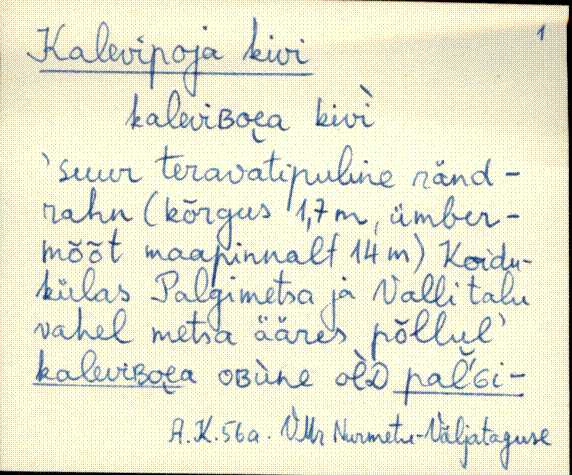 1
Kalevipoja kivi
kaleviʙoɛ̯a kivì
'suur teravatipuline ränd-
rahn (kõrgus 1,7m, ümber-
mõõt maapinnalt 14m) Koidu-
külas Palgimetsa ja Valli talu
vahel metsa ääres põllul'
kaleviʙoɛ̯a oʙùne òlᴅ pal̆'ɢi-
A.K.56a. VMr Nurmetu-Väljataguse